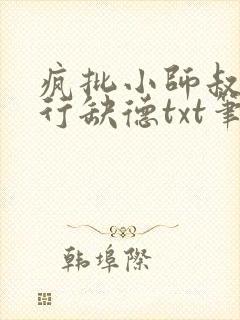 疯批小师叔
行缺德txt笔
韩埠際